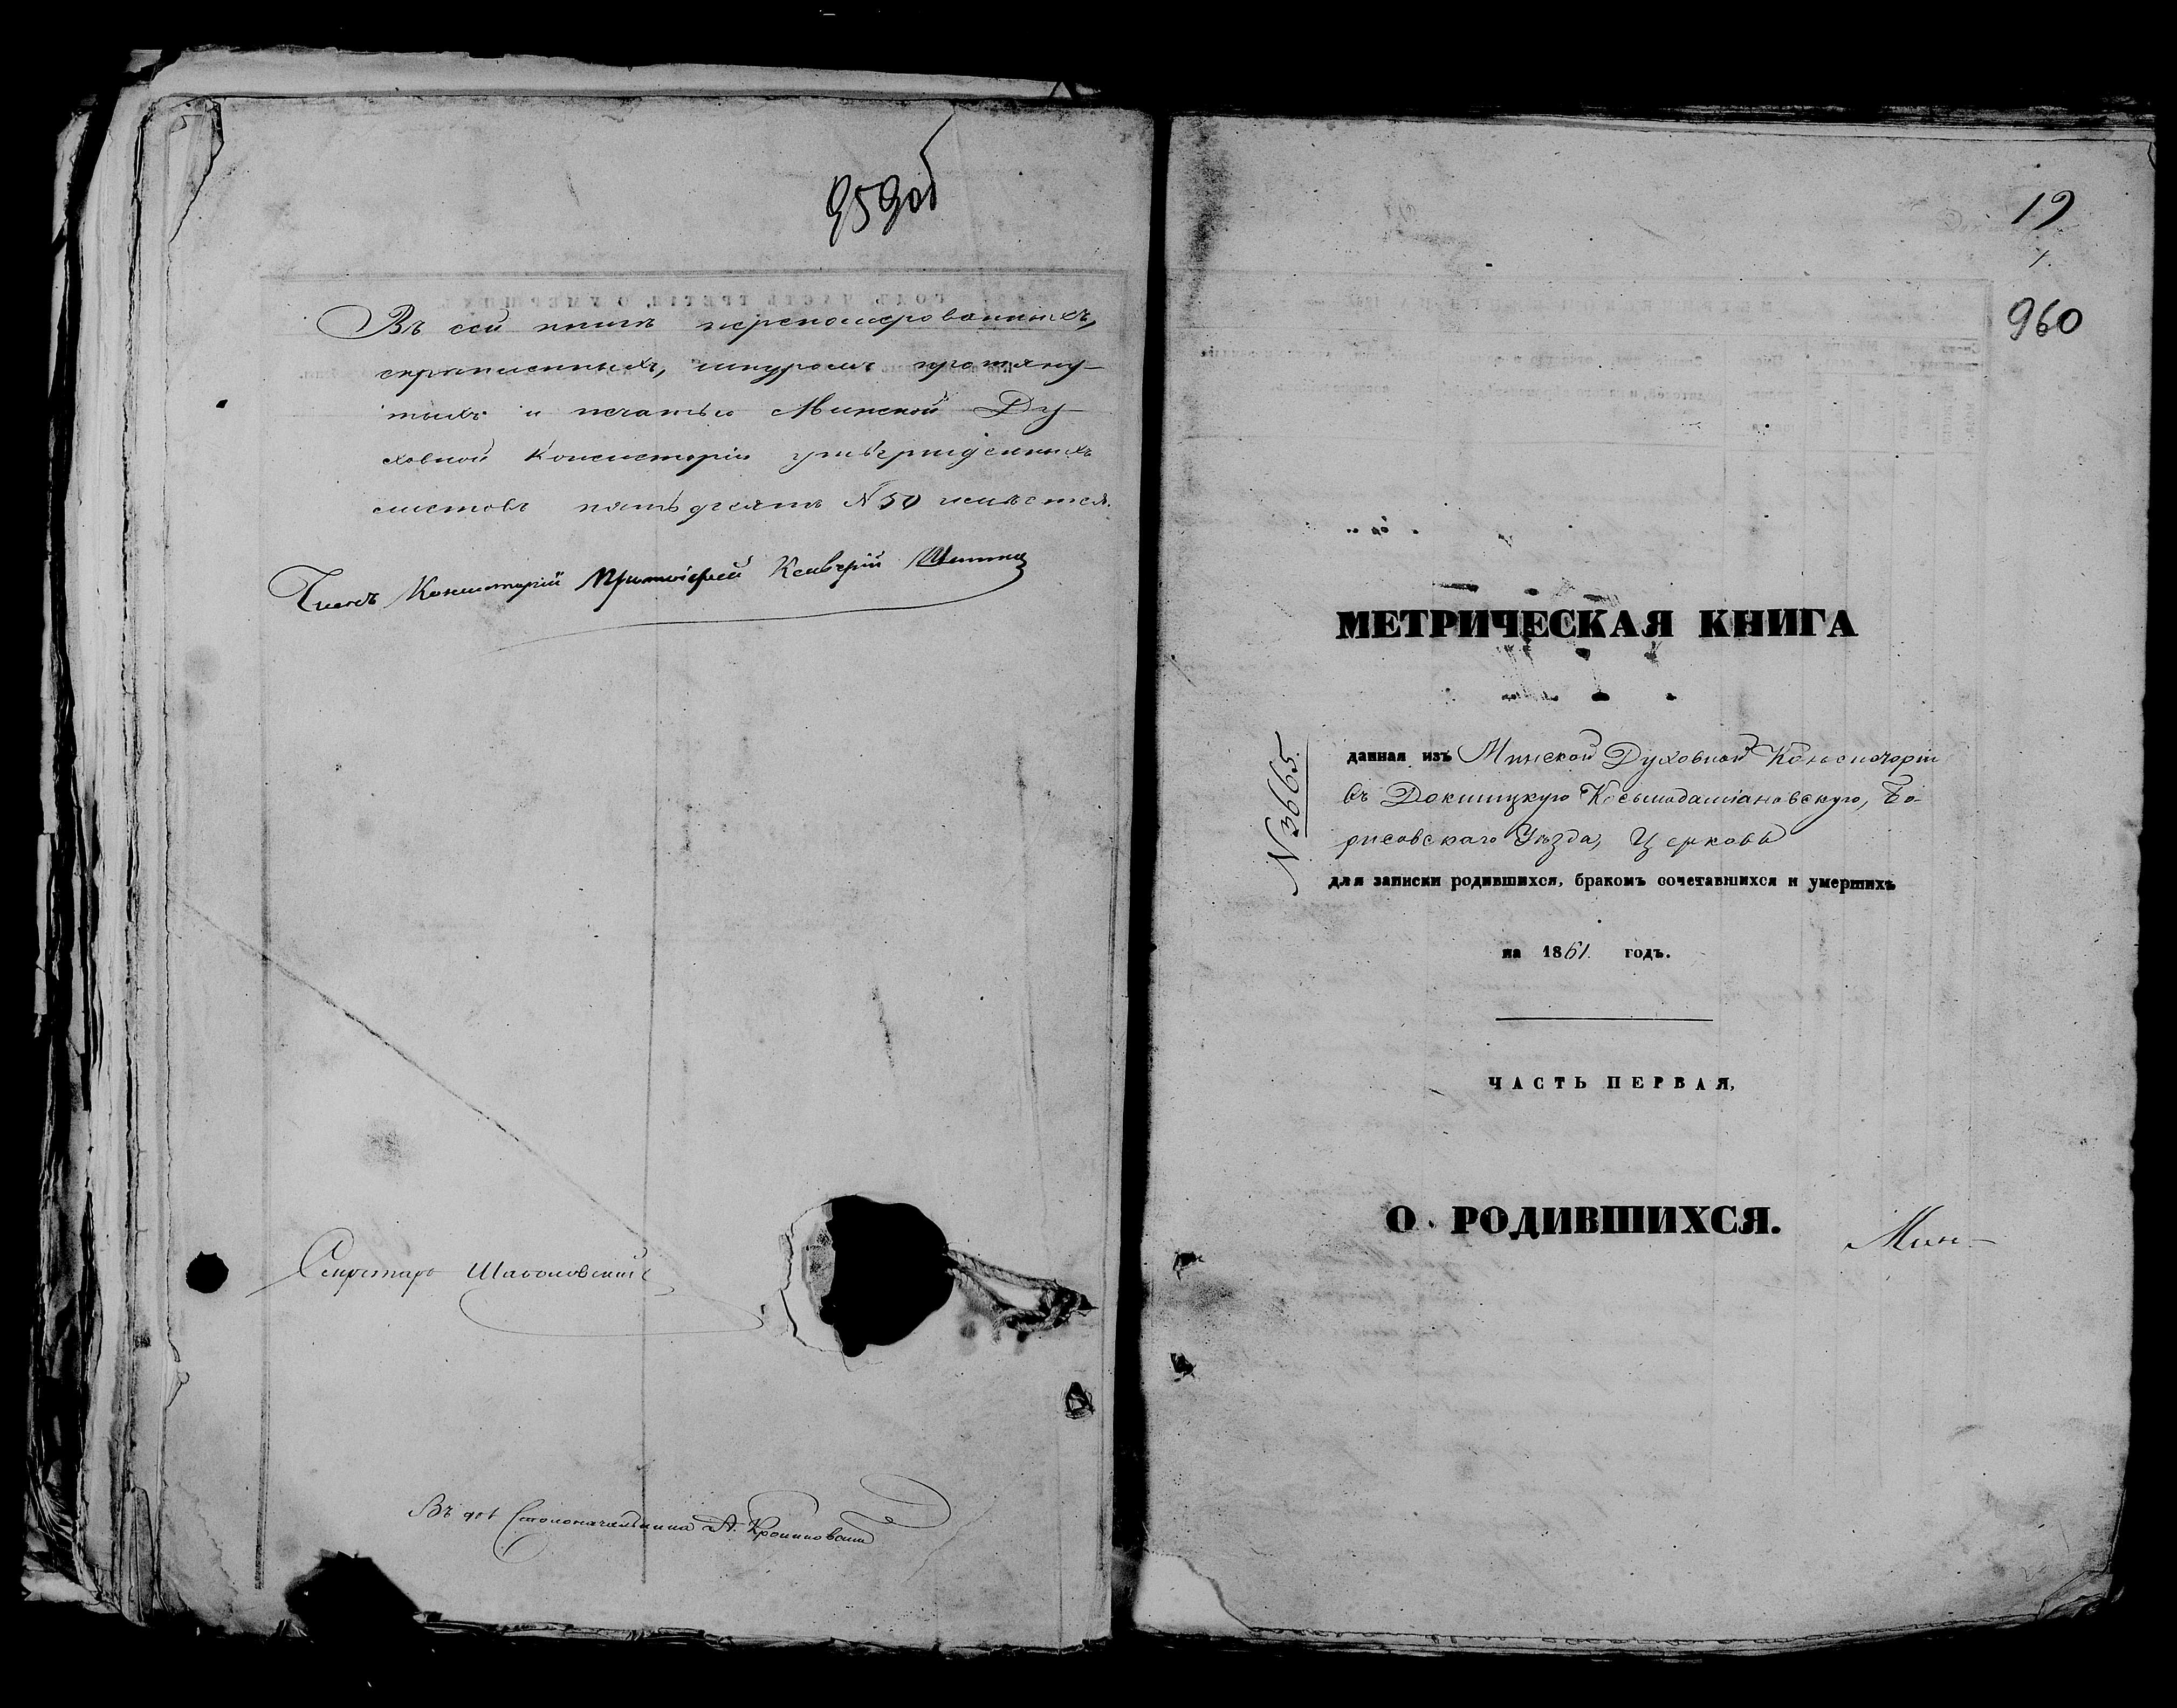 959об
Въ сей книгѣ перенумерованныхъ,
скрѣпленныхъ, шнуромъ протяну-
тыхъ и печатью Минской Ду-
ховной Консисторіи утвержденныхъ
листовъ пятьдесятъ N 50 имѣется.
Членъ Консисторіи Протоіерей Ксаверій
Секретарь
Въ дол Столоначальника А.
19
1.
960
МЕТРИЧЕСКАЯ КНИГА
N 3665.
данная изъ Минской Духовной Консисторіи
въ Докшицкую Косьмодаміановскую, Бо-
рисовскаго Уѣзда, Церковь
для записки родившихся, бракомъ сочетавшихся и умершихъ
на 1861. годъ.
ЧАСТЬ ПЕРВАЯ,
О РОДИВШИХСЯ.
Мин-